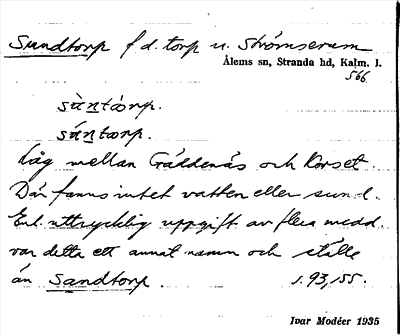 Sundtorp f.d. torp u. Strömserum
Ålems sn, Stranda hd, Kalm. l.
566
sùntòrp.
súntorp.
Låg mellan Gäddenäs och Korset
Där fanns intet vatten eller sund.
Enl. uttrycklig uppgift av flera medd.
var detta ett annat namn och ställe
än Sandtorp. 1.93,155.
Ivar Modéer 1935